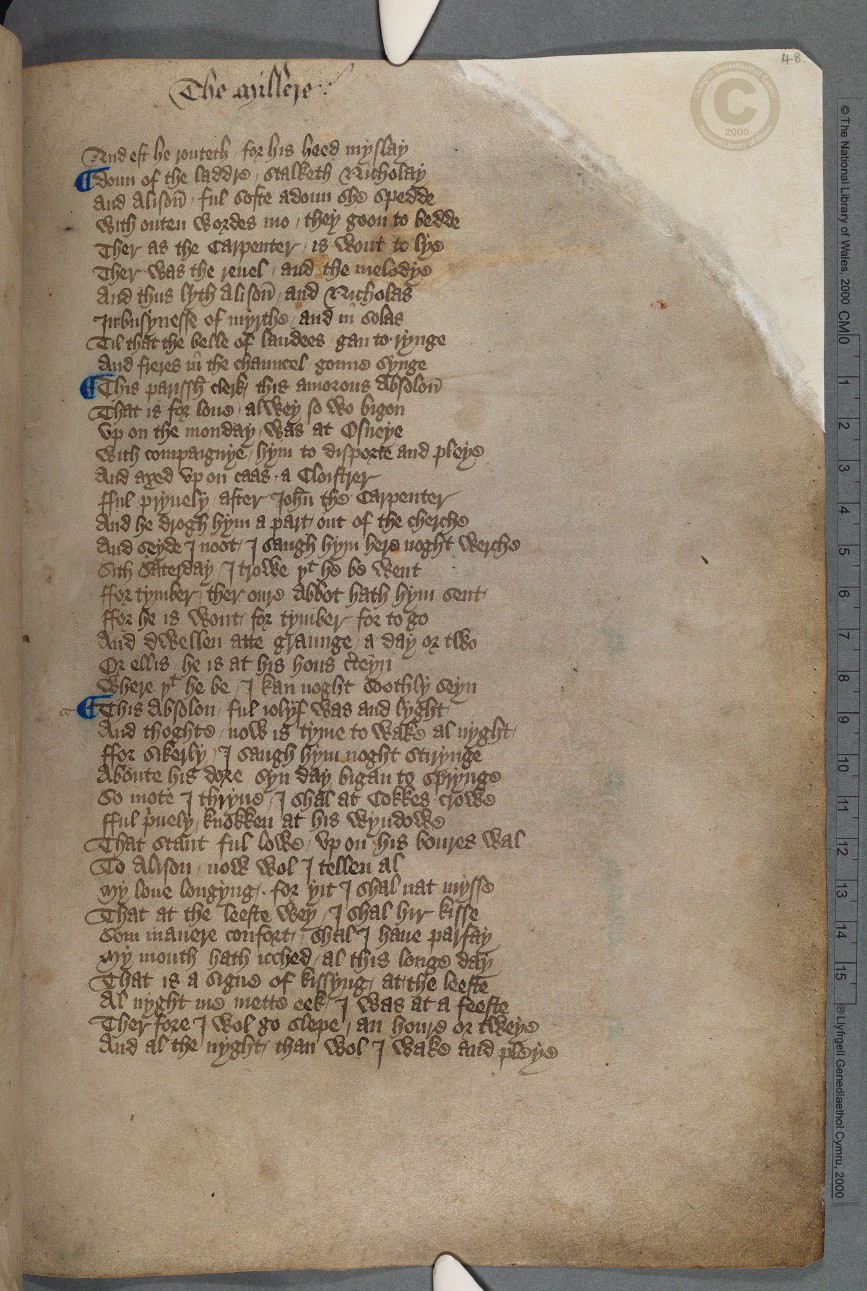 The Millere
48.
And eft he routeth / for his heed myslay
Doun of the laddre / stalketh Nicholay
And Alison̄ / ful softe adoun she spedde
With outen wordes mo / they goon to bedde
Ther as the Carpenter / is wont to lye
Ther was the reuel / and the melodye
And thus lyth Alison̄ / and Nicholas
In busynesse of myrthe / and in solas
Til that the belle of laudees / gan to rynge
And freres in the chauncel / gonne synge
This parissh clerk / this amorous Absolon̄
That is for loue / alwey so wo bigon
Vp on the monday / was at Osneye
With compaignye / hym to disporte and pleye
And axed vp on caas / a Cloistrer
fful pryuely / after Iohn̄ the Carpenter
And he drogh hym a part / out of the cherche
And seyde I noot / I saugh hym here noght werche
Sith Saterday / I trowe yt he be went
ffor tymber / ther oure Abbot hath hym sent
ffor he is wont / for tymber for to go
And dwellen atte graunge / a day or two
Or ellis he is at his hous c̄teyn
Where yt he be / I kan noght soothly seyn
This Absolon / ful iolyf was and lyght
And thoghte / now is tyme to wake al nyght
ffor sikerly / I saugh hym noght stirynge
Aboute his dore / syn day bigan to sprynge
So mote I thryue / I shal at Cokkes crowe
fful p̄uely / knokken at his wyndowe
That stant ful lowe / vp on his boures wal
To Alison / now wol I tellen al
My loue longyng / for yit I shal nat mysse
That at the leeste wey / I shal hir kisse
Som manere confort / shal I haue parfay
My mouth hath icched / al this longe day
That is a signe of kissyng / at the leeste
Al nyght me mette eek / I was at a feeste
Ther fore I wol go slepe / an houre or tweye
And al the nyght / than wol I wake and pleye
Llyfrgell Genedlaethol Cymru
C
2000
National Library of Wales
© The National Library of Wales, 2000 CM 0
1
2
3
4
5
6
7
8
9
10
11
12
13
14
15
© Llyfrgell Genedlaethol Cymru, 2000